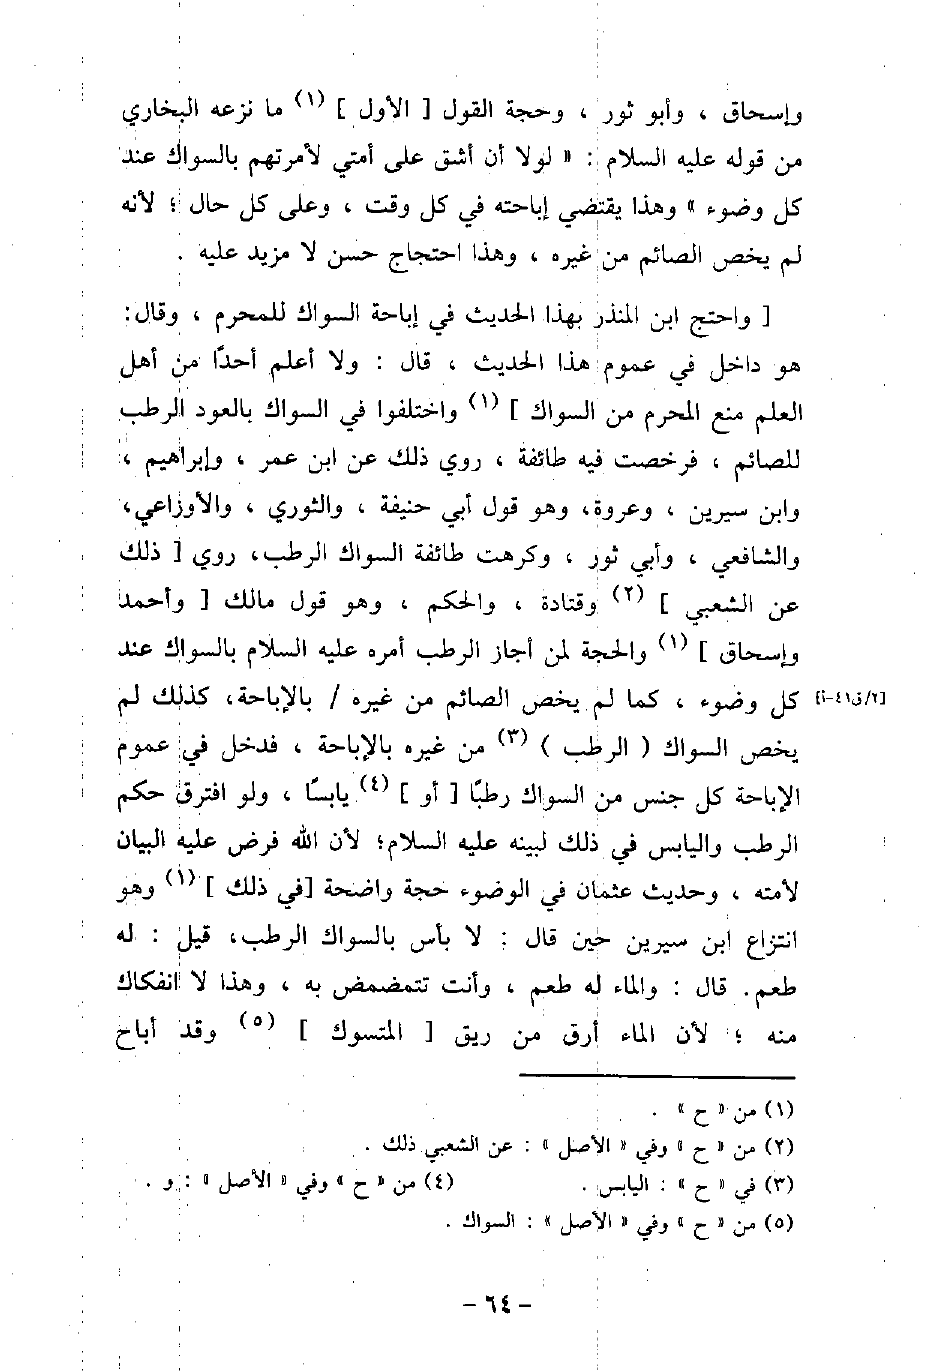 وإسحاق ، وأبو ثور ، وحجة القول [ الأول ] (١) ما نزعه البخاري
من قوله عليه السلام : « لولا أن أشق على أمتي لأمرتهم بالسواك عند
كل وضوء » وهذا يقتضي إباحته في كل وقت ، وعلى كل حال ؛ لأنه
لم يخص الصائم من غيره ، وهذا احتجاج حسن لا مزيد عليه .
[ واحتج ابن المنذر بهذا الحديث في إباحة السواك للمحرم ، وقال :
هو داخل في عموم هذا الحديث ، قال : ولا أعلم أحدًا من أهل
العلم منع المحرم من السواك ] (١) واختلفوا في السواك بالعود الرطب
للصائم ، فرخصت فيه طائفة ، روي ذلك عن ابن عمر ، وإبراهيم ،
وابن سيرين ، وعروة، وهو قول أبي حنيفة ، والثوري ، والأوزاعي،
والشافعي ، وأبي ثور ، وكرهت طائفة السواك الرطب، روي [ ذلك
عن الشعبي ] (٢) وقتادة ، والحكم ، وهو قول مالك [ وأحمد
وإسحاق ] (١) والحجة لمن أجاز الرطب أمره عليه السلام بالسواك عند
كل وضوء ، كما لم يخص الصائم من غيره / بالإباحة، كذلك لم [٢/ق٤١-أ]
يخص السواك ( الرطب ) (٣) من غيره بالإباحة ، فدخل في عموم
الإباحة كل جنس من السواك رطبًا [ أو ] (٤) يابسًا ، ولو افترق حكم
الرطب واليابس في ذلك لبينه عليه السلام؛ لأن الله فرض عليه البيان
لأمته ، وحديث عثمان في الوضوء حجة واضحة [في ذلك ] (١) وهو
انتزاع ابن سيرين حين قال : لا بأس بالسواك الرطب، قيل : له
طعم. قال : والماء له طعم ، وأنت تتمضمض به ، وهذا لا انفكاك
منه ؛ لأن الماء أرق من ريق [ المتسوك ] (٥) وقد أباح
(١) من « ح » .
(٢) من « ح » وفي « الأصل » : عن الشعبي ذلك .
(٣) في « ح » : اليابس . (٤) من « ح » وفي « الأصل » : و .
(٥) من « ح » وفي « الأصل » : السواك .
- ٦٤ -